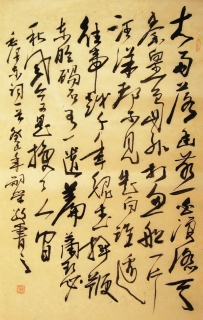 大雨落幽燕白浪滔天
秦皇岛外打鱼船一片
汪洋都不见知向谁边
往事越千年魏武挥鞭
东临碣石有遗篇萧瑟
秋风今又是换了人间
毛泽东词一首